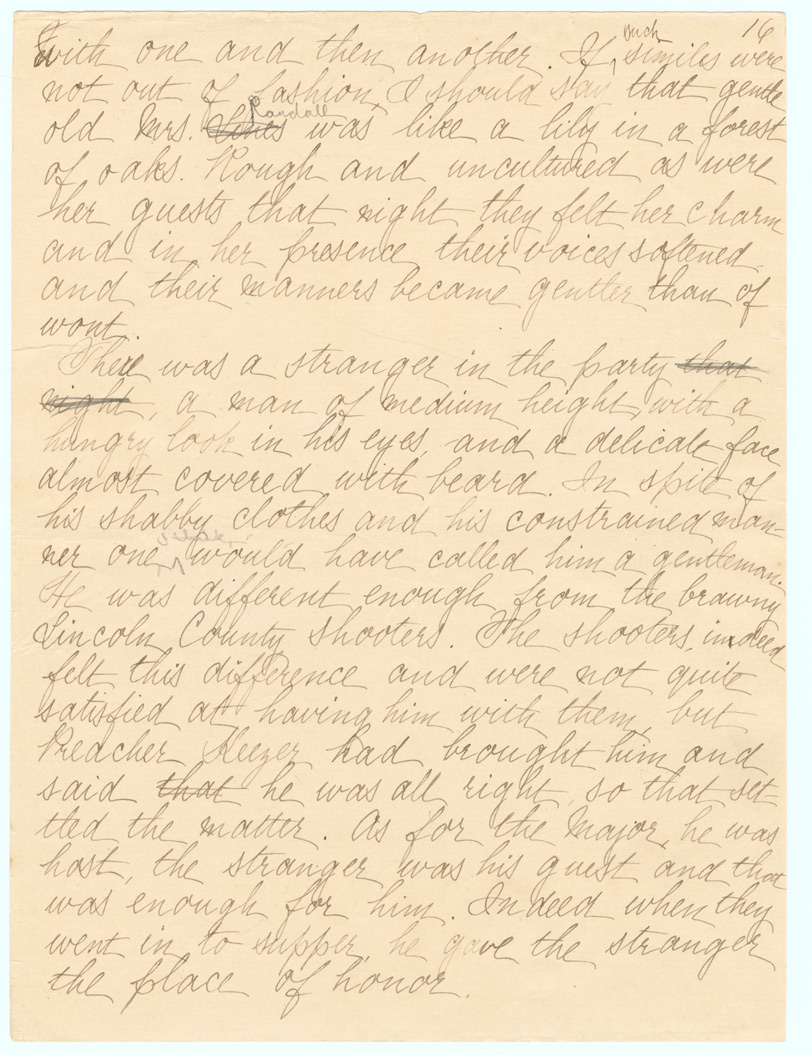 16
with one and then another. If such similes were
not out of fashion, I should say that gentle
old Mrs. Randall was like a lily in a forest
of oaks. Rough and uncultured as were
her guests that night they felt her charm
and in her presence their voices softened
and their manners became gentler than of
wont.
There was a stranger in the party that
night, a man of medium height, with a
hungry look in his eyes, and a delicate face
almost covered with beard. In spite of
his shabby clothes and his constrained man-
ner one would have called him a gentleman.
He was different enough from the brawny
Lincoln County shooters. The shooters, indeed
felt this difference and were not quite
satisfied at having him with them, but
Preacher Kuzer had brought him and
said that he was all right, so that set-
tled the matter. As for the Major, he was
host, the stranger was his guest and that
was enough for him. Indeed when they
went in to supper, he gave the stranger
the place of honor.